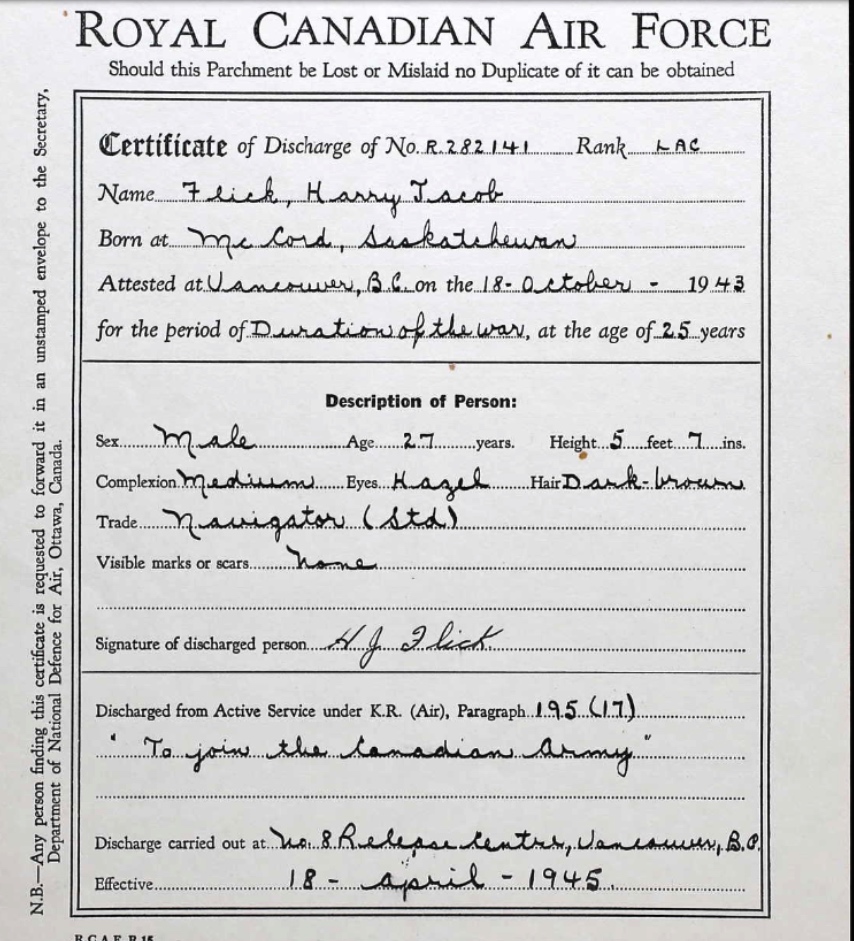 ROYAL CANADIAN AIR FORCE
Should this Parchment be Lost or Mislaid no Duplicate of it can be obtained
Certificate of Discharge of No. R.282141 Rank LAC
Name Flick, Harry Jacob
Born at Mc Cord, Saskatchewan
Attested at Vancouver, B.C. on the 18 - October - 1943
for the period of Duration of the war, at the age of 25 years
Description of Person:
Sex Male Age 27 years. Height 5 feet 7 ins.
Complexion Medium Eyes Hazel Hair Dark-brown
Trade Navigator (Std)
Visible marks or scars None
Signature of discharged person H J Flick
Discharged from Active Service under K.R. (Air), Paragraph 195 (17)
" To join the Canadian Army "
Discharge carried out at No. 8 Release Centre, Vancouver, B.C.
Effective 18 - April - 1945.
N.B.—Any person finding this certificate is requested to forward it in an unstamped envelope to the Secretary,
Department of National Defence for Air, Ottawa, Canada.
R.C.A.F. R 15